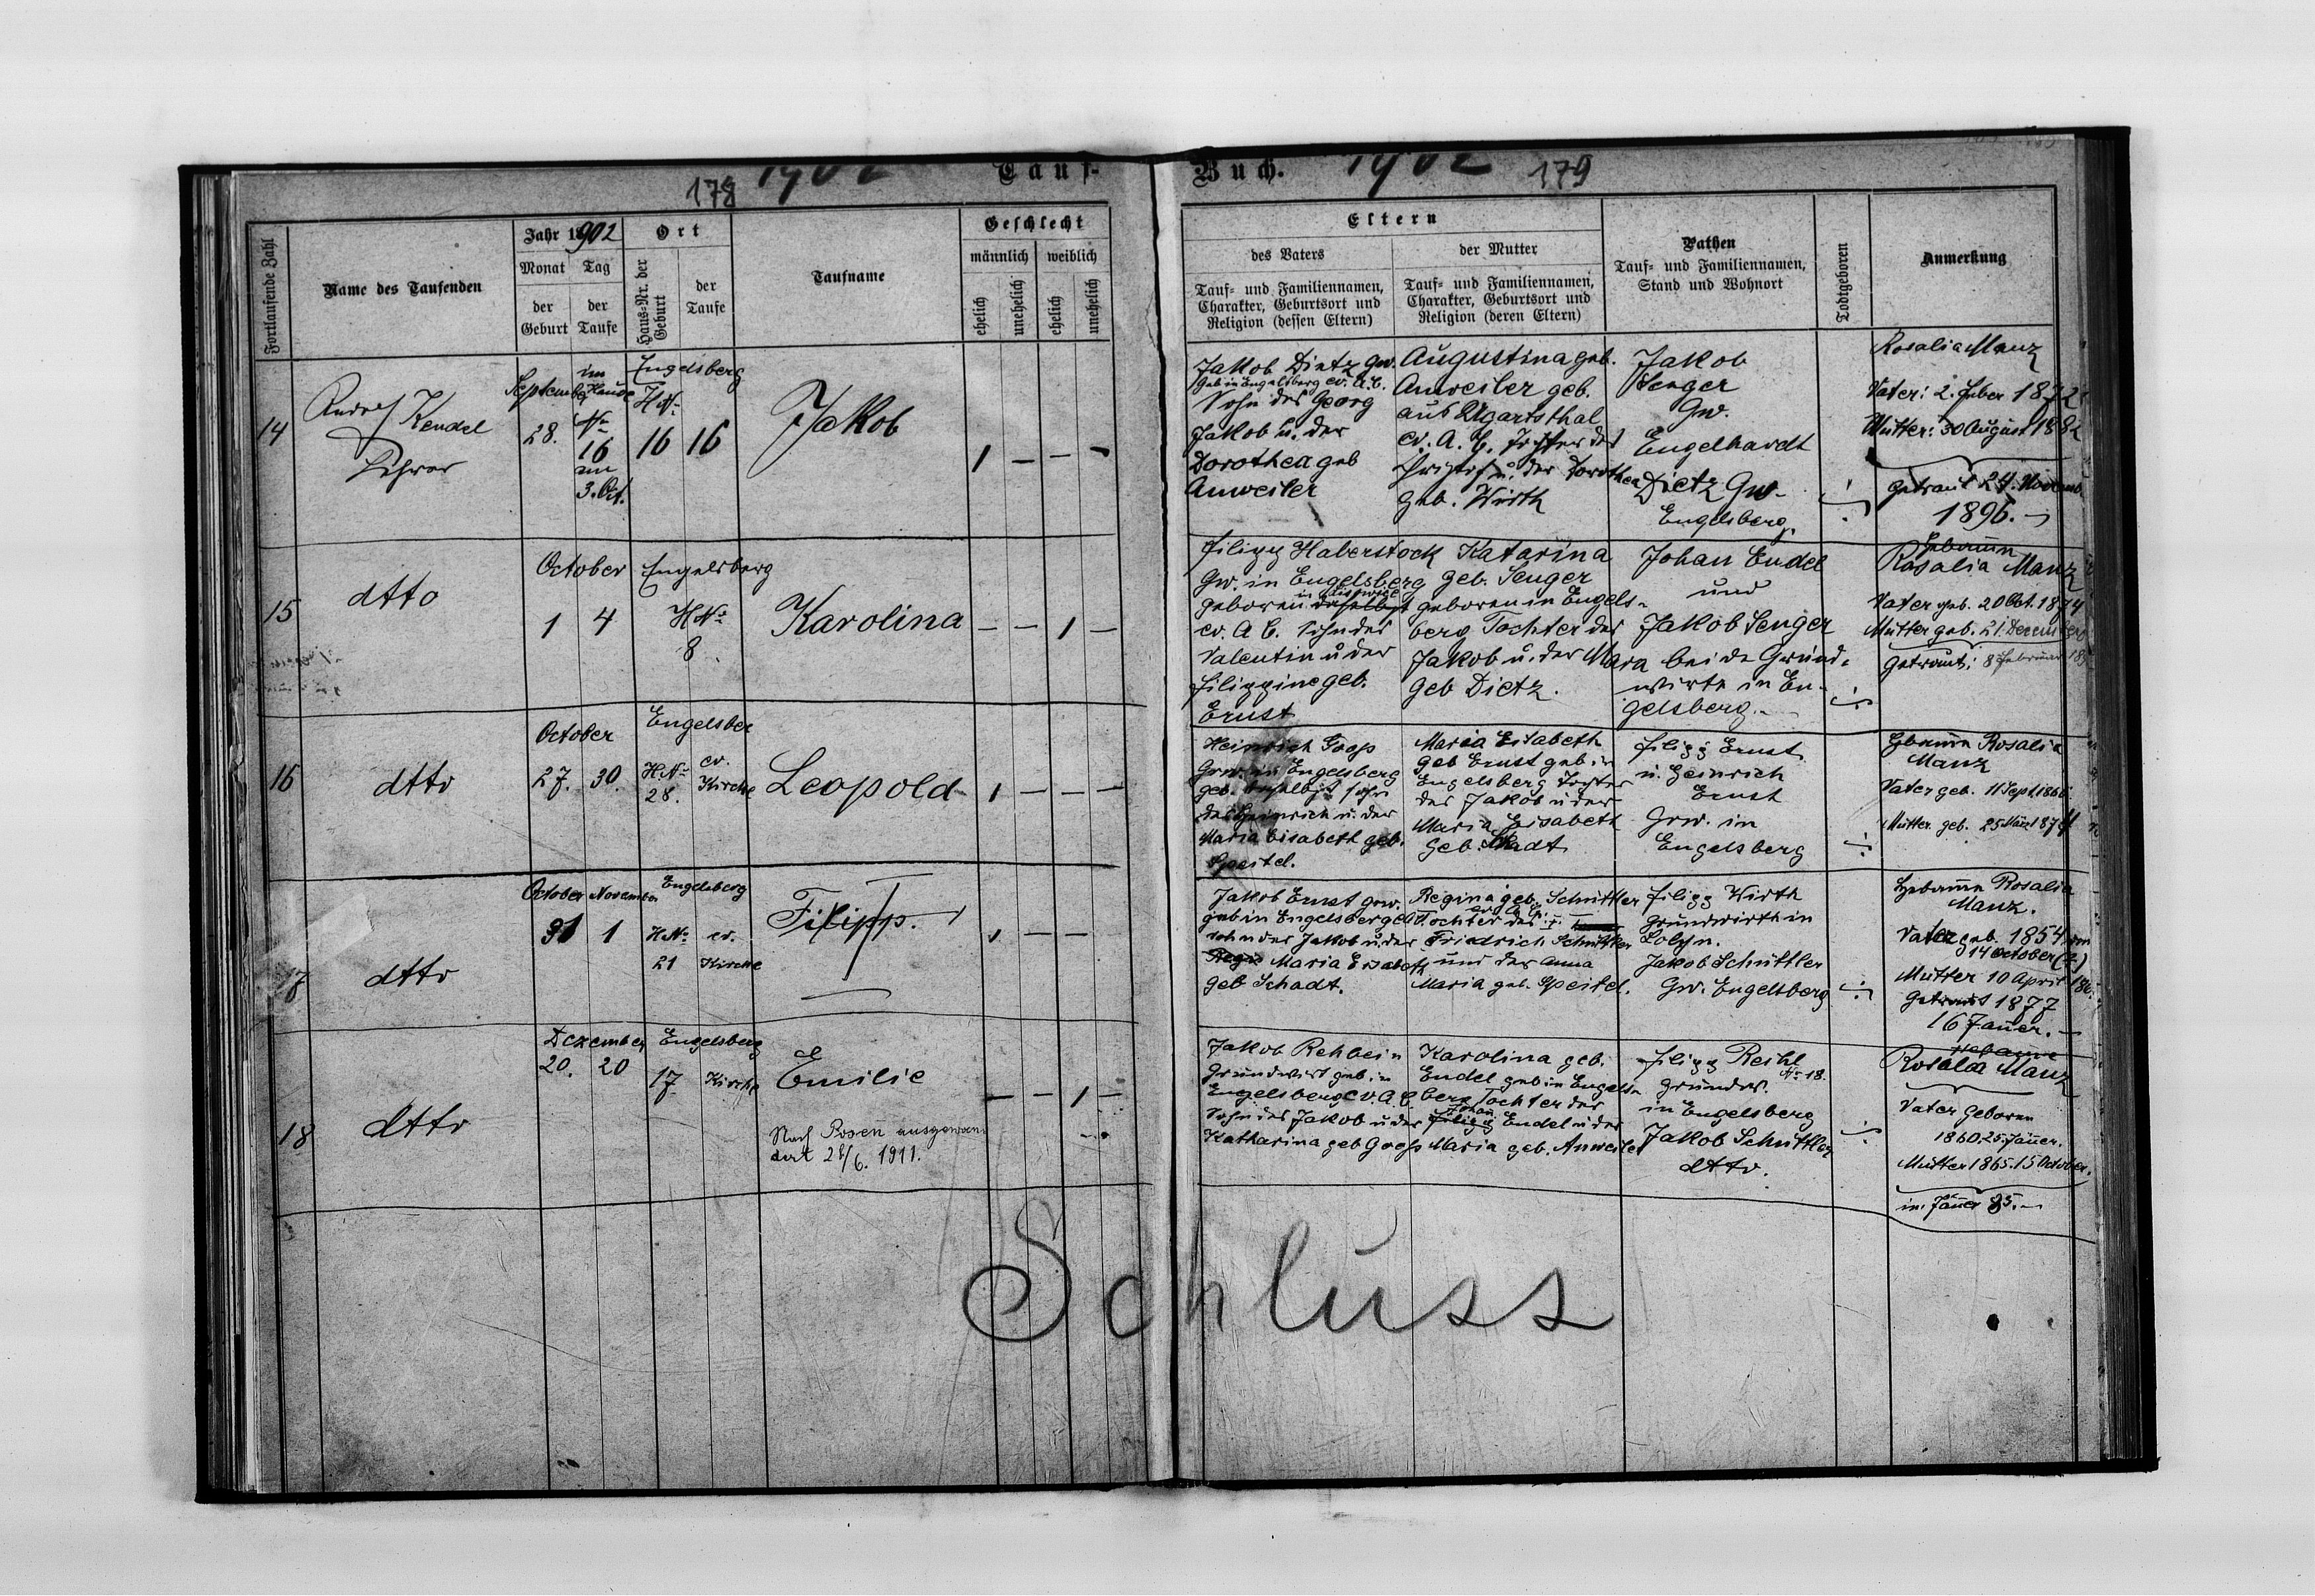 178 1902 Tauf-
Buch. 1902 179
Fortlaufende Zahl
Name des Taufenden
Jahr 1902
Monat Tag
der Geburt
der Taufe
Ort
Haus-Nr. der Geburt
der Taufe
Taufname
Geschlecht
männlich weiblich
ehelich
unehelich
ehelich
unehelich
Eltern
des Vaters
Tauf- und Familiennamen,
Charakter, Geburtsort und
Religion (dessen Eltern)
der Mutter
Tauf- und Familiennamen,
Charakter, Geburtsort und
Religion (deren Eltern)
Pathen
Tauf- und Familiennamen,
Stand und Wohnort
Todtgeboren
Anmerkung
14
Kendel
Lehrer
September
28.
im
Hause
No
16
am
3. Oct.
Engelsberg
HNo
16 16
Jakob
1 — — —
Jakob Dietz Gw.
geb in Engelsberg ev. A.C.
Sohn des Georg
Jakob u. der
Dorothea geb
Anweiler
Augustina geb.
Anweiler geb.
aus Ugartsthal
ev. A. C. Tochter des
u. der Dorothea
geb. Wirth
Jakob
Senger
Gw.
Engelhardt
Dietz Gw.
Engelsberg.
Rosalia Manz
Vater: 2. Feber 1872
Mutter: 30 August 1882
getraut 24. Novemb.
1896.
15
dtto
October
1 4
Engelsberg
HNo
8
Karolina
— — 1 —
Filipp Haberstock
Gw. in Engelsberg
geboren daselbst
ev. A C. Sohn des
Valentin u der
Filippine geb.
Ernst
Katarina
geb. Senger
geboren in Engels-
berg Tochter des
Jakob u. der Mara
geb Dietz.
Johan Endel
und
Jakob Senger
beide Grund-
wirte in En-
gelsberg.
Hebamm
Rosalia Manz
Vater geb. 20 Oct. 1874
Mutter geb. 21. Decemb
Getraut: 8 Februar
16
dtto
October
27. 30.
Engelsber
HNo
28.
ev.
Kirche
Leopold
1 — — —
Heinrich Goos
Grw. in Engelsberg
geb. daselbst Sohn
des Heinrich u. der
Maria Eisabeth geb.
Speitel.
Maria Eisabeth
geb Ernst geb in
Engelsberg Tochter
des Jakob u der
Maria Eisabeth
geb. Schadt
Filipp Ernst
u. Heinrich
Ernst
Grw. im
Engelsberg
Hebamm Rosalia
Manz
Vater geb. 11 Sept 1866
Mutter geb. 25 März 1874
17
dtto
October November
31 1
Engelsberg
HNo
21
ev.
Kirche
Filipp.
1 — —
Jakob Ernst grw.
geb in Engelsberg
sohn des Jakob u. der
Maria Eisabeth
geb Schadt.
Regina geb. Schüttler
Tochter des
Friedrich Schüttler
und der Anna
Maria geb. Speitel.
Filipp Wirth
grundwirth in
Jakob Schüttler
Gw. Engelsberg
Hebamm Rosalia
Manz.
Vater geb. 1854 am
14 October (?)
Mutter 10 April
Getraut 1877
16 Jäner.
18
dtto
Dezember
20. 20
Engelsberg
17 Kirche
Emilie
— — 1 —
Nach Posen ausgewan-
dert 28/6. 1911.
Jakob Rehbein
Grundwirt geb. in
Engelsberg ev. A. C
Sohn des Jakob u der
Katharina geb Goos
Karolina geb.
Endel geb in Engels-
berg Tochter der
Johan Filipp Endel u der
Maria geb. Anweiler
Filipp Reihl
No 18.
grundw.
in Engelsberg
Jakob Schüttler
dtto.
Hebamme
Rosalia Manz
Vater geboren
1860. 25. Jänner.
Mutter 1865. 15 October.
in. Jäner 85.
Schluss